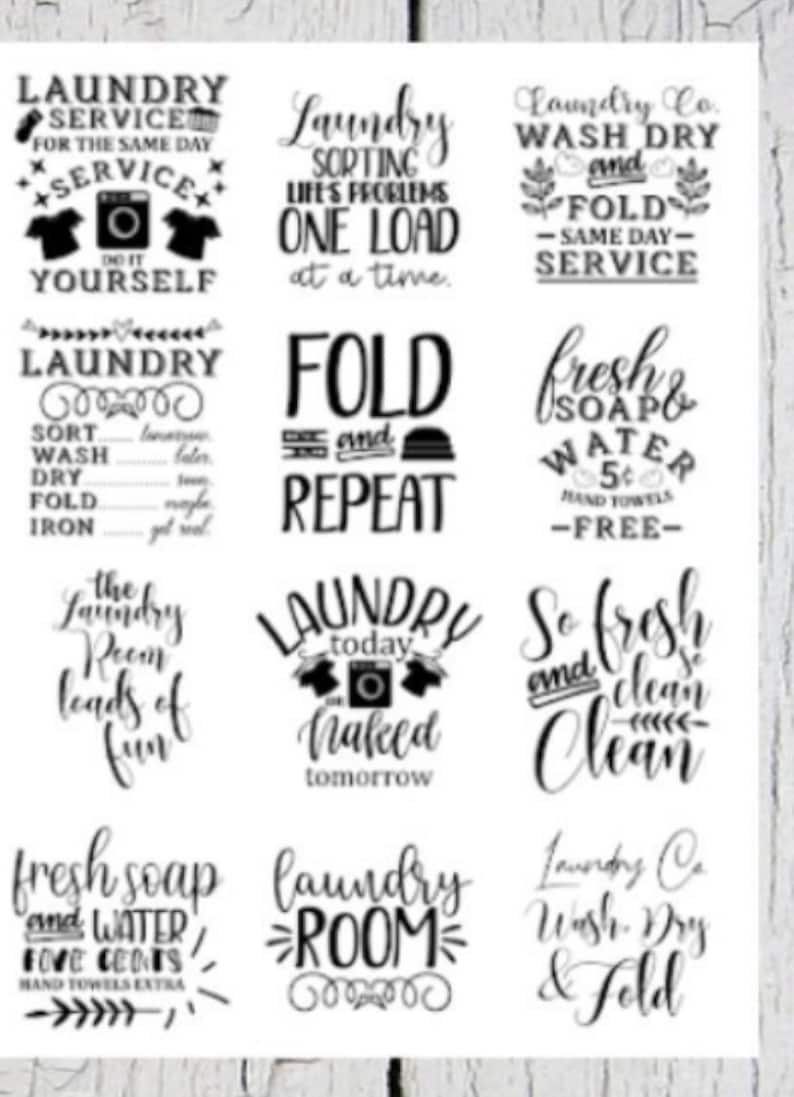 LAUNDRY
SERVICE
FOR THE SAME DAY
SERVICE
DO IT
YOURSELF
Laundry
SORTING
LIFE'S PROBLEMS
ONE LOAD
at a time.
Laundry Co.
WASH DRY
and
FOLD
SAME DAY
SERVICE
LAUNDRY
SORT...... tomorrow.
WASH ........... later.
DRY................. soon.
FOLD............ maybe.
IRON ........ get real.
FOLD
and
REPEAT
fresh
SOAP &
WATER
5¢
HAND TOWELS
-FREE-
the
Laundry
Room
loads of
fun
LAUNDRY
today
or
Naked
tomorrow
So fresh
and so
clean
Clean
fresh soap
and WATER
FIVE CENTS
HAND TOWELS EXTRA
laundry
ROOM
Laundry Co
Wash, Dry
& Fold